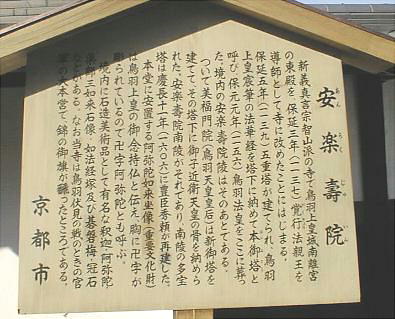 安楽壽院
あんらくじゅいん
新義真言宗智山派の寺で鳥羽上皇城南離宮
の東殿を、保延三年(一一三七)覚行法親王を
導師として寺に改めたことにはじまる。
保延五年(一一三九)五重塔が建てられ、鳥羽
上皇宸筆の法華経を塔下に納めて本御塔と
呼び、保元元年(一一五六)鳥羽法皇をここに葬っ
た。境内の安楽壽院陵はそのあとである。
ついで美福門院(鳥羽天皇皇后)は新御塔を
建てて、その塔下に御子近衛天皇の骨を納めら
れた。安楽壽院南陵がそれであり、南陵の多宝
塔は慶長十一年(一六〇六)に豊臣秀頼が再建した。
本堂に安置する阿弥陀如来坐像(重要文化財)
は鳥羽上皇の御念持仏と伝え、胸に卍字が
彫られているので卍字阿弥陀とも呼ぶ。
境内に石造美術品として有名な釈迦・阿弥陀
薬師三如来石像、如法経塚及び碁磐梅・冠石
などがある。なお当寺は鳥羽伏見の戦のときの官
軍の大本営で、錦の御旗が飜ったところである。
京都市